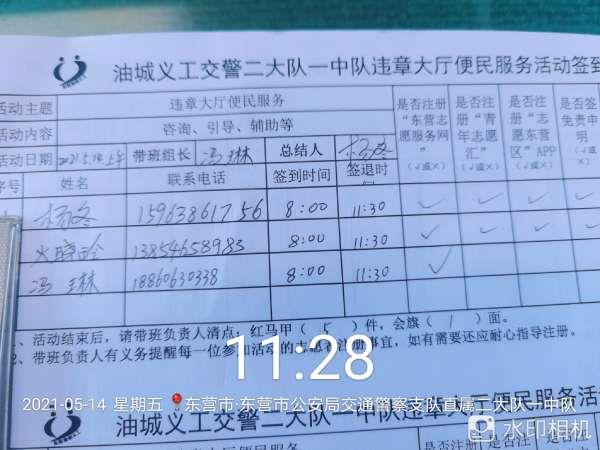 油城义工交警二大队一中队违章大厅便民服务活动签到
活动主题 违章大厅便民服务 是否注册“东营志愿服务网”（√或×） 是否注册“青年志愿汇”（√或×） 是否注册“志愿东营区”APP（√或×） 是否签免责申明（√或×）
活动内容 咨询、引导、辅助等
活动日期 2021.5.14上午 带班组长 冯琳 总结人 杨冬
序号 姓名 联系电话 签到时间 签退时间
杨冬 15963861756 8:00 11:30 ✓ ✓ ✓ ✓
晓玲 13854658983 8:00 11:30 ✓ ✓ ✓ ✓
冯琳 18860630338 8:00 11:30 ✓
1、活动结束后，请带班负责人清点：红马甲（ 5 ）件，会旗（ 1 ）面。
2、带班负责人有义务提醒每一位参加活动的志愿者注册事宜，如有需要还应耐心指导注册。
11:28
2021-05-14 星期五 东营市·东营市公安局交通警察支队直属二大队一中队
油城义工交警二大队一中队违章大厅便民服务活
水印相机
违章大厅便民服务 是否注册 是否注